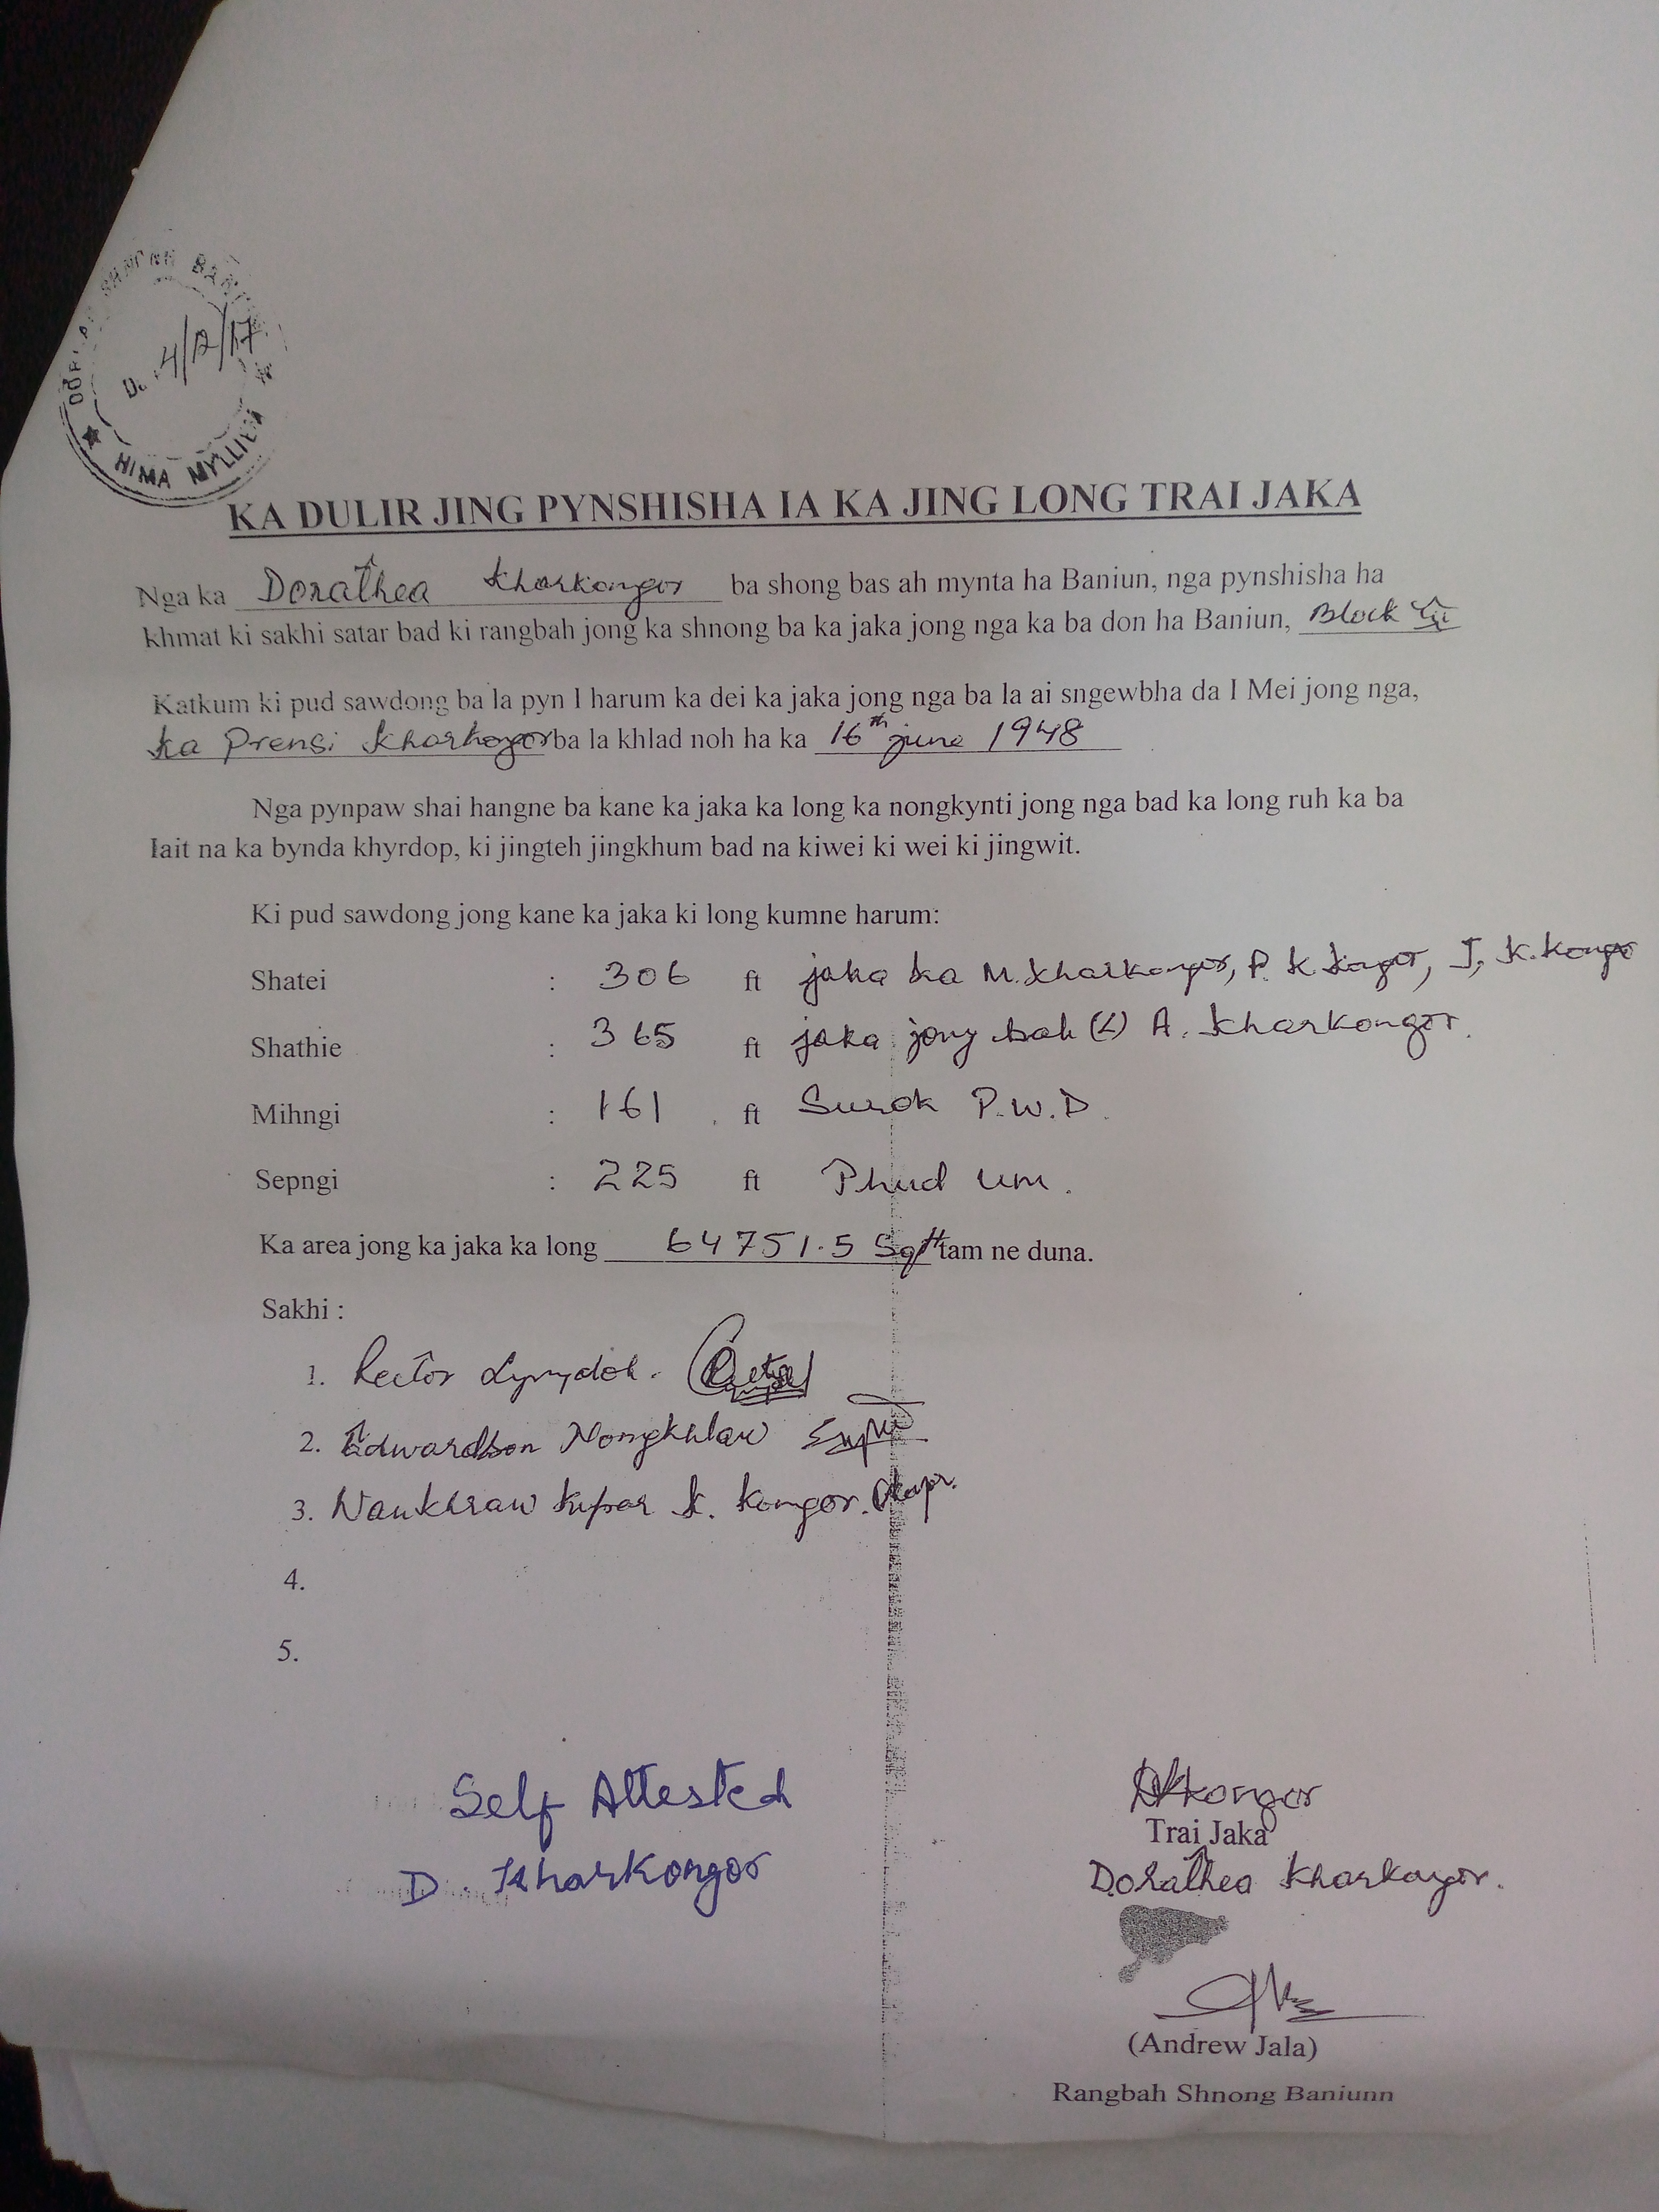 HIMA MYLLIEM
4/12/17
KA DULIR JING PYNSHISHA IA KA JING LONG TRAI JAKA
Nga ka Dorathea Kharkongor ba shong bas ah mynta ha Baniun, nga pynshisha ha
khmat ki sakhi satar bad ki rangbah jong ka shnong ba ka jaka jong nga ka ba don ha Baniun, Block
Katkum ki pud sawdong ba la pyn I harum ka dei ka jaka jong nga ba la ai sngewbha da I Mei jong nga,
ka Prensi Kharkongor ba la khlad noh ha ka 16th june 1948
Nga pynpaw shai hangne ba kane ka jaka ka long ka nongkynti jong nga bad ka long ruh ka ba
Iait na ka bynda khyrdop, ki jingteh jingkhum bad na kiwei ki wei ki jingwit.
Ki pud sawdong jong kane ka jaka ki long kumne harum:
Shatei : 306 ft jaka ka M. Kharkongor, P. K. Kongor, J. K. Kongor
Shathie : 365 ft jaka jong bah (L) A. Kharkongor.
Mihngi : 161 ft Surok P.W.D.
Sepngi : 225 ft Phud um.
Ka area jong ka jaka ka long 64751.5 Sqft tam ne duna.
Sakhi :
1. Rector Lyngdoh.
2. Edwardson Nongkhlaw
3. Nankhraw Kupar K. Kongor.
4.
5.
Self Attested
D. Kharkongor
DKkongor
Trai Jaka
Dorathea Kharkongor.
(Andrew Jala)
Rangbah Shnong Baniunn